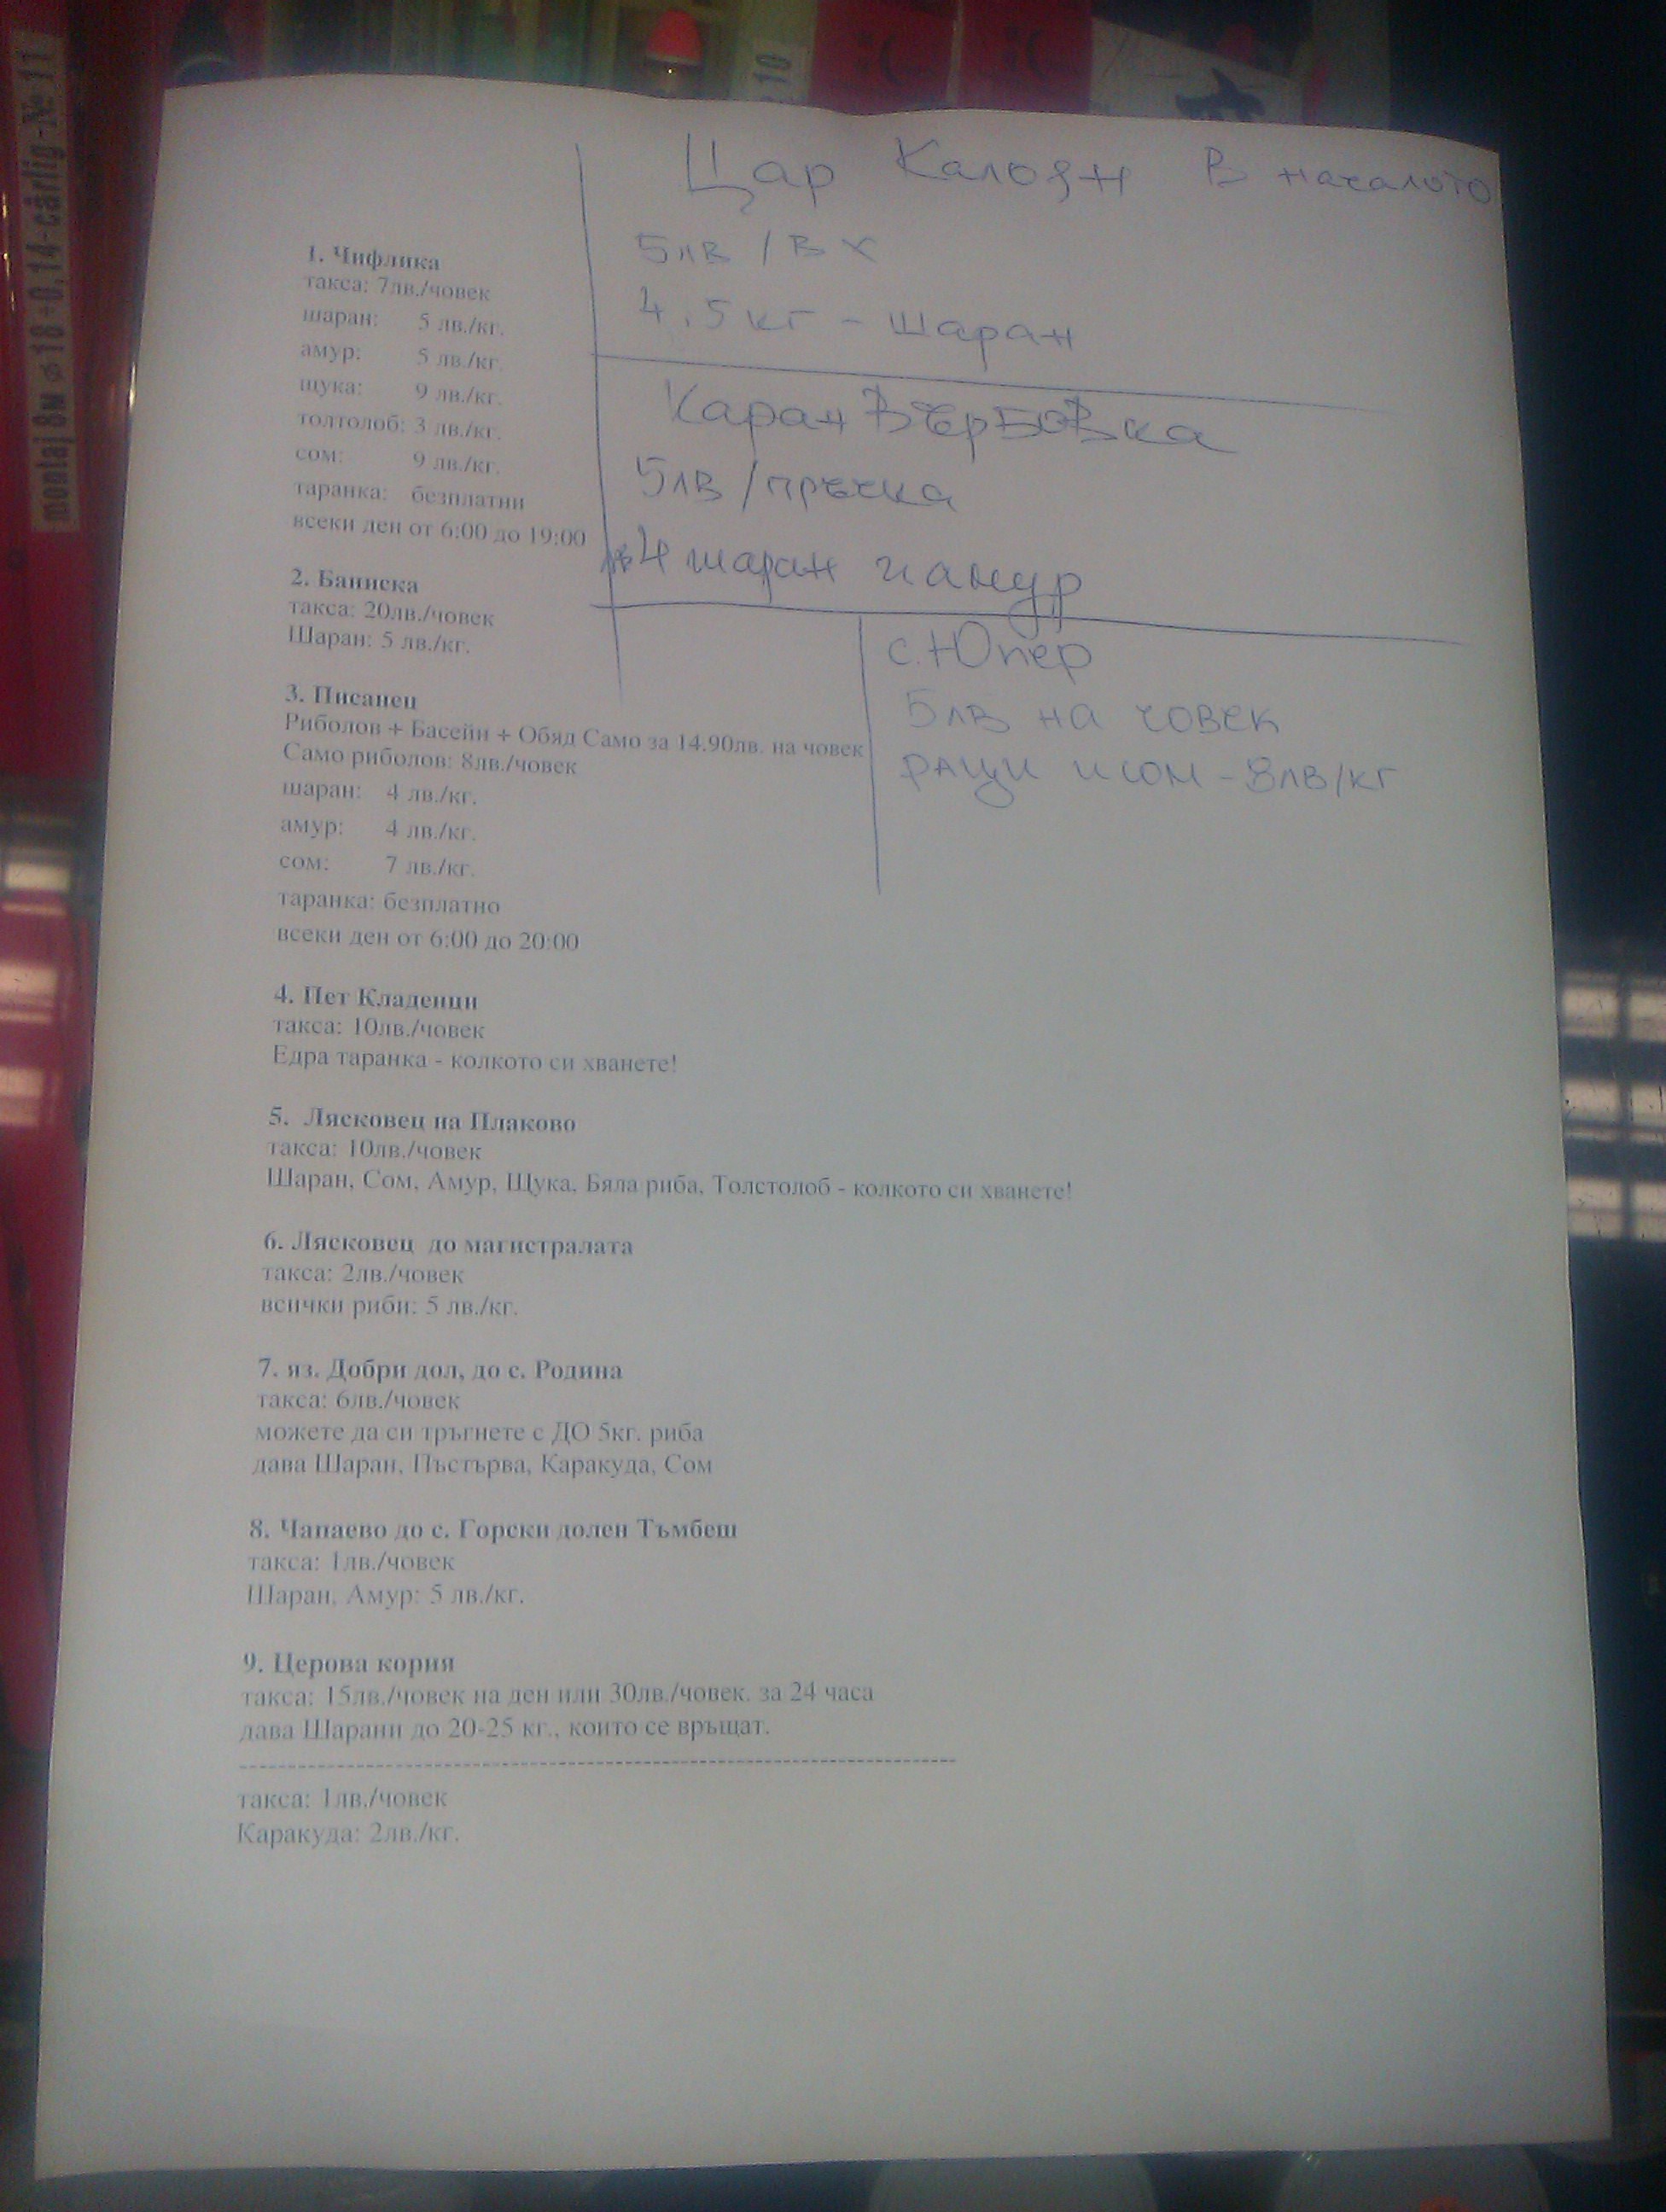 montaj 8м ø 18+0,14-cârlig-№ 11
10
Цар Калоян В началото
5лв / вх
4.5кг - шаран
Каран Върбовка
5лв / пръчка
4 шаран и амур
с. Юпер
5лв на човек
раци и сом - 8лв/кг
1. Чифлика
такса: 7лв./човек
шаран: 5 лв./кг.
амур: 5 лв./кг.
щука: 9 лв./кг.
толтолоб: 3 лв./кг.
сом: 9 лв./кг.
таранка: безплатни
всеки ден от 6:00 до 19:00
2. Баниска
такса: 20лв./човек
Шаран: 5 лв./кг.
3. Писанец
Риболов + Басейн + Обяд Само за 14.90лв. на човек
Само риболов: 8лв./човек
шаран: 4 лв./кг.
амур: 4 лв./кг.
сом: 7 лв./кг.
таранка: безплатно
всеки ден от 6:00 до 20:00
4. Пет Кладенци
такса: 10лв./човек
Едра таранка - колкото си хванете!
5. Лясковец на Плаково
такса: 10лв./човек
Шаран, Сом, Амур, Щука, Бяла риба, Толстолоб - колкото си хванете!
6. Лясковец до магистралата
такса: 2лв./човек
всички риби: 5 лв./кг.
7. яз. Добри дол, до с. Родина
такса: 6лв./човек
можете да си тръгнете с ДО 5кг. риба
дава Шаран, Пъстърва, Каракуда, Сом
8. Чапаево до с. Горски долен Тъмбеш
такса: 1лв./човек
Шаран, Амур: 5 лв./кг.
9. Церова кория
такса: 15лв./човек на ден или 30лв./човек. за 24 часа
дава Шарани до 20-25 кг., които се връщат.
такса: 1лв./човек
Каракуда: 2лв./кг.